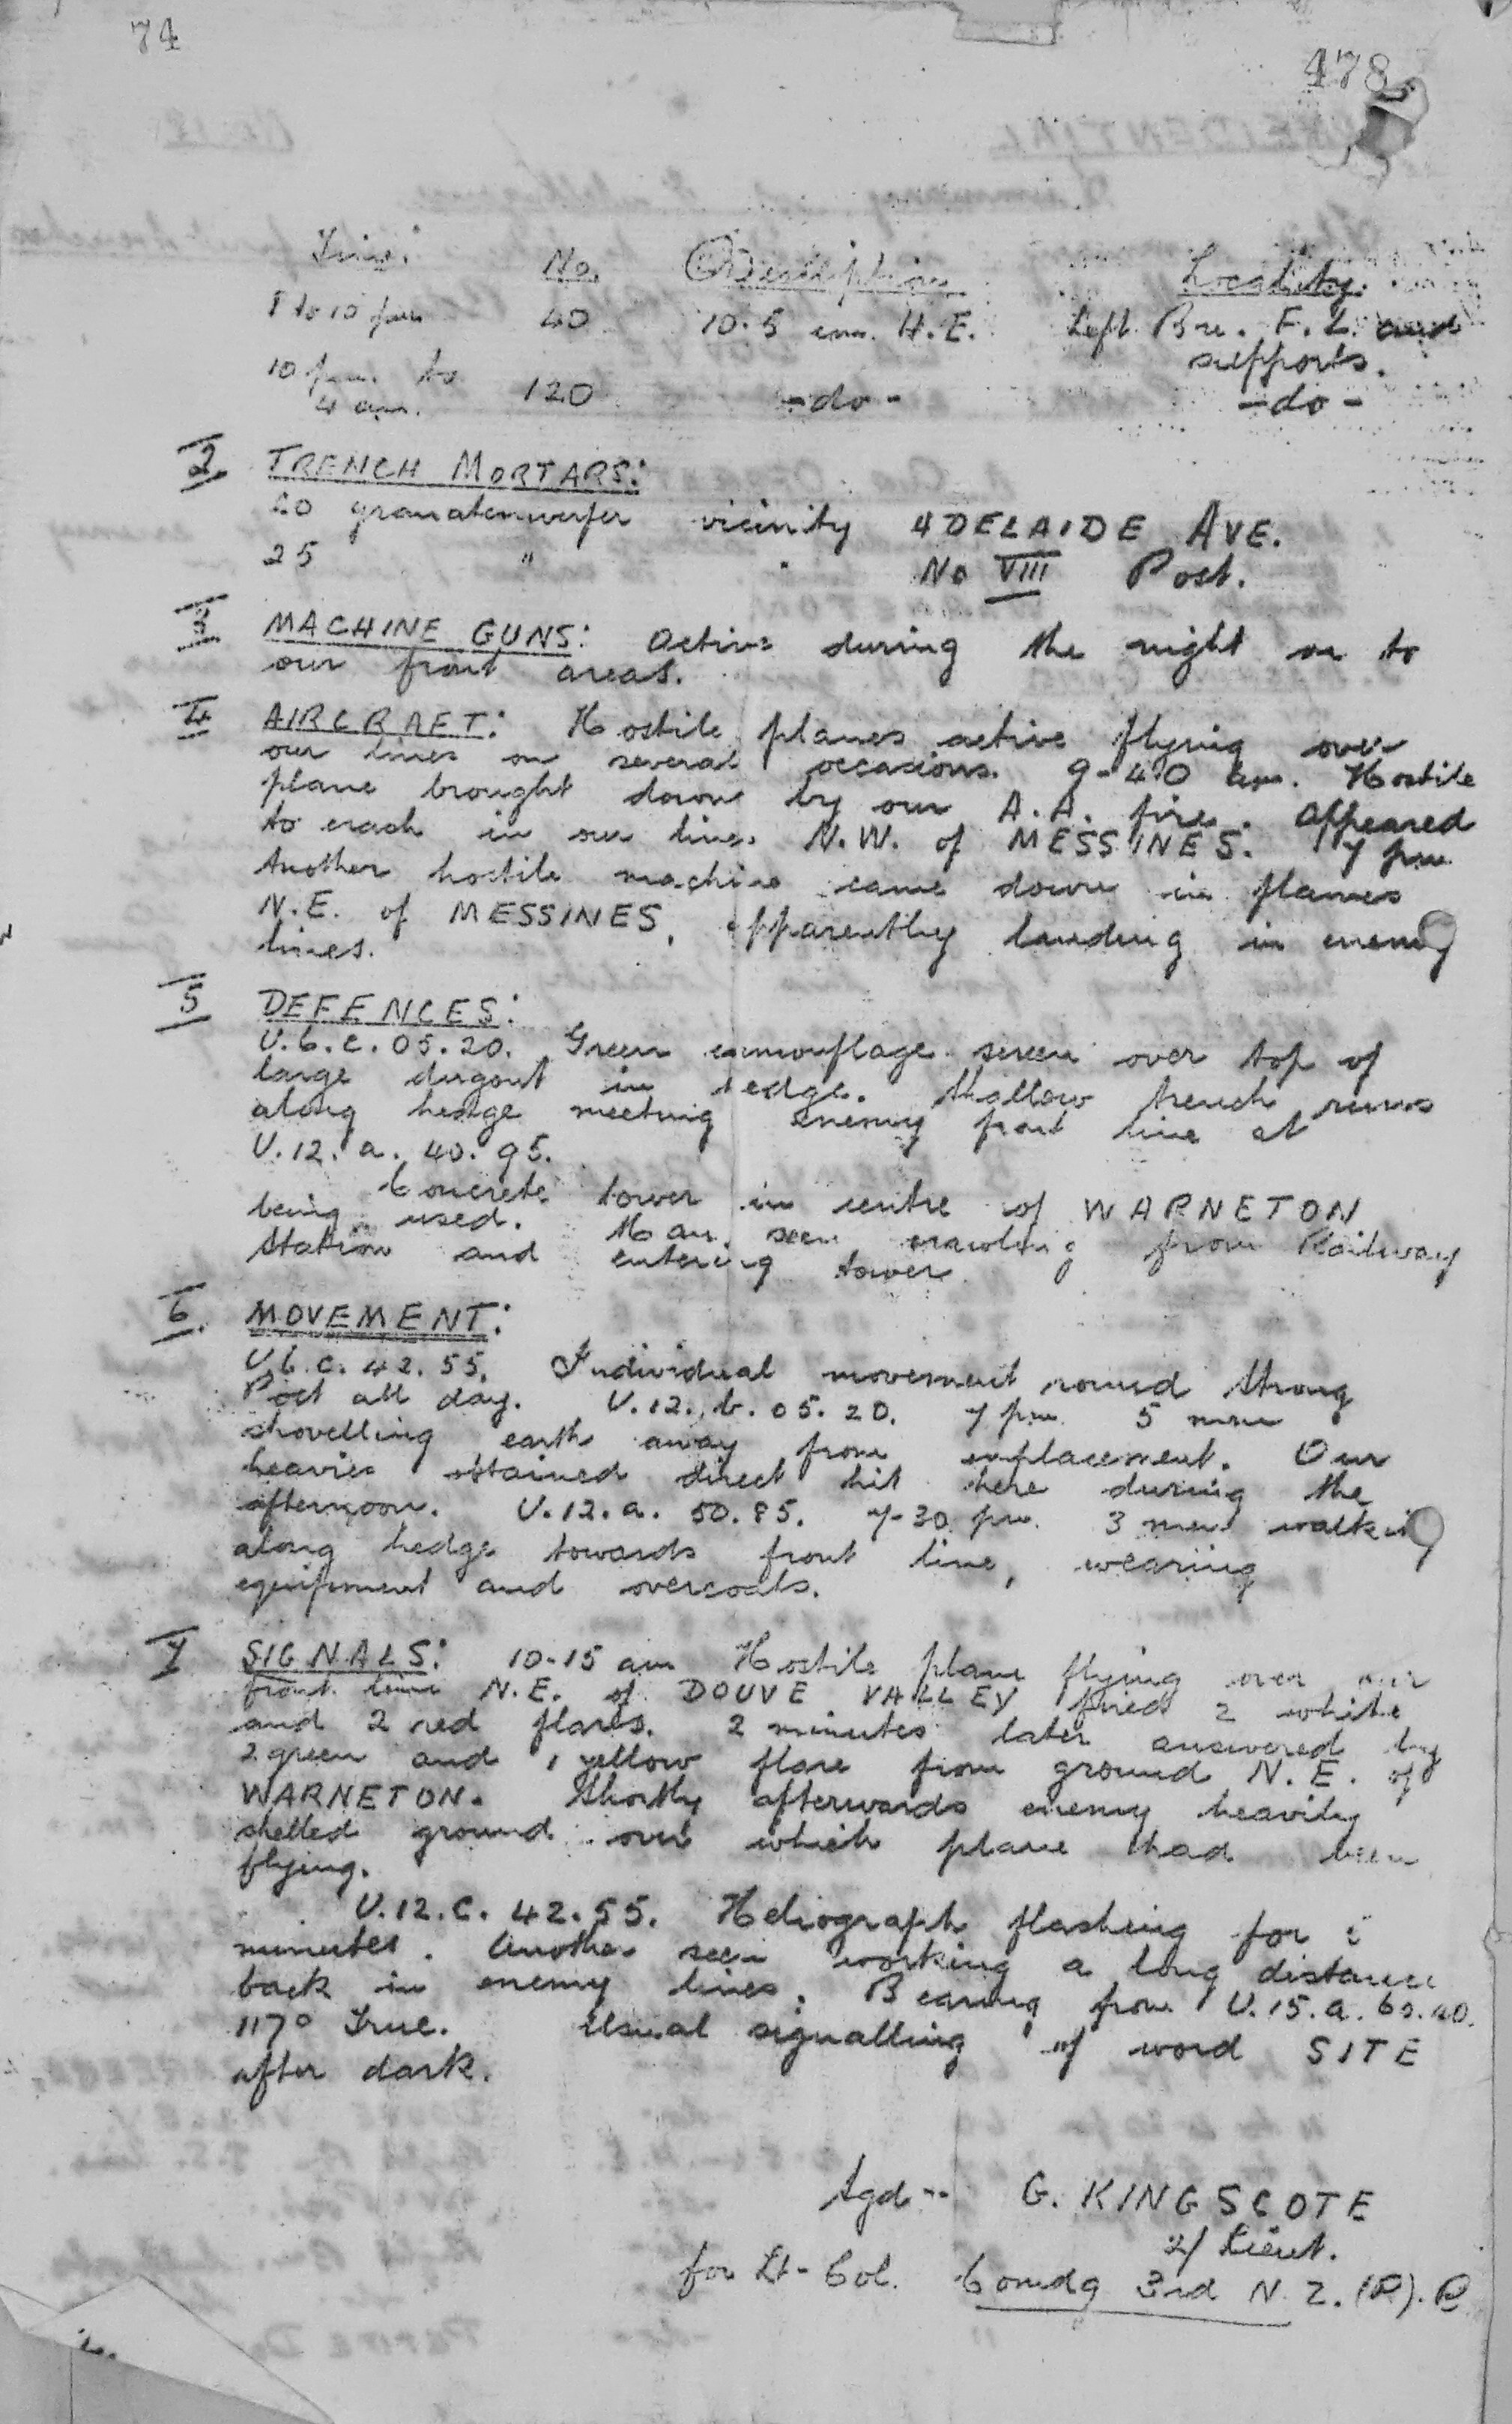 74
478
Time: No. Description Locality.
8 to 10 pm 40 10.5 cm. H.E. Left Bn. F.L. and
supports.
10 pm. to
4 am. 120 -do- -do-
2 TRENCH MORTARS:
20 granatenwerfer vicinity ADELAIDE AVE.
25 " " No VIII Post.
3 MACHINE GUNS: Active during the night on to
our front areas.
4 AIRCRAFT: Hostile planes active flying over
our lines on several occasions. 9-40 am. Hostile
plane brought down by our A.A. fire. Appeared
to crash in our lines N.W. of MESSINES. 7 pm
Another hostile machine came down in flames
N.E. of MESSINES, apparently landing in enemy
lines.
5 DEFENCES:
U.6.c.05.20. Green camouflage screen over top of
large dugout in hedge. Shallow trench runs
along hedge meeting enemy front line at
U.12.a.40.95.
Concrete tower in centre of WARNETON
being used. Man seen crawling from Railway
Station and entering tower.
6. MOVEMENT:
U.6.c.42.55. Individual movement round Strong
Post all day. U.12.b.05.20. 7 pm 5 men
shovelling earth away from emplacement. Our
heavies obtained direct hit here during the
afternoon. U.12.a.50.85. 7-30 pm. 3 men walking
along hedge towards front line, wearing
equipment and overcoats.
7 SIGNALS: 10-15 am Hostile plane flying over our
front line N.E. of DOUVE VALLEY fired 2 white
and 2 red flares. 2 minutes later answered by
2 green and 1 yellow flare from ground N.E. of
WARNETON. Shortly afterwards enemy heavily
shelled ground over which plane had been
flying.
U.12.c.42.55. Heliograph flashing for
minutes. Another seen working a long distance
back in enemy lines. Bearing from U.15.a.60.40.
117° True. Usual signalling of word SITE
after dark.
Sgd -- G. KINGSCOTE
2/ Lieut.
for Lt-Col. Comdg 3rd N.Z.(R).B